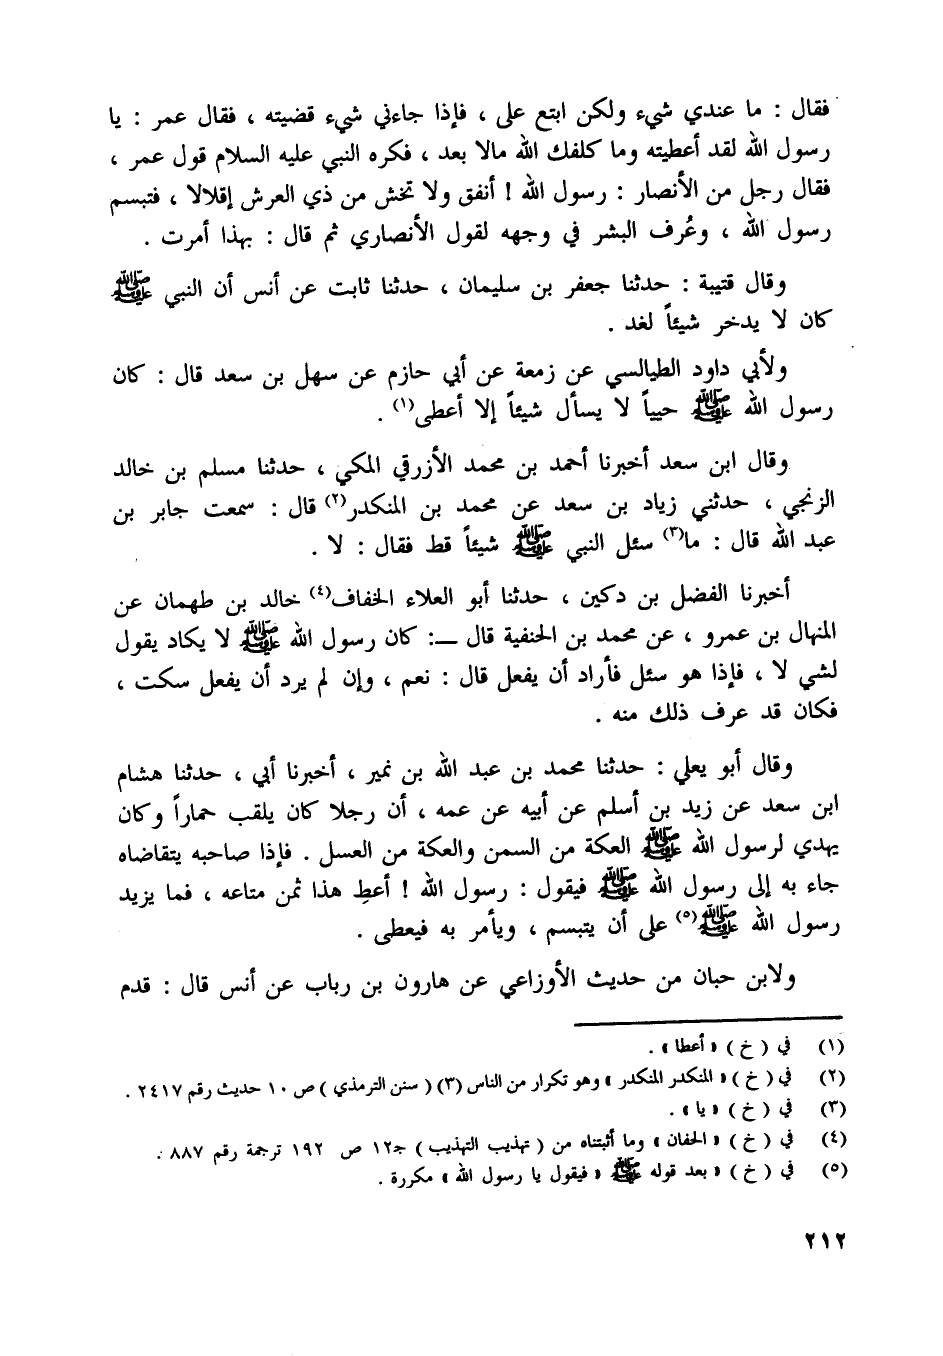 فقال : ما عندي شيء ولكن ابتع على ، فإذا جاءني شيء قضيته ، فقال عمر : يا
رسول الله لقد أعطيته وما كلفك الله مالا بعد ، فكره النبي عليه السلام قول عمر ،
فقال رجل من الأنصار : رسول الله ! أنفق ولا تخش من ذي العرش إقلالا ، فتبسم
رسول الله ، وعُرف البشر في وجهه لقول الأنصاري ثم قال : بهذا أمرت .
وقال قتيبة : حدثنا جعفر بن سليمان ، حدثنا ثابت عن أنس أن النبي ﷺ
كان لا يدخر شيئاً لغد .
ولأبي داود الطيالسي عن زمعة عن أبي حازم عن سهل بن سعد قال : كان
رسول الله ﷺ حيياً لا يسأل شيئاً إلا أعطى(١) .
وقال ابن سعد أخبرنا أحمد بن محمد الأزرقي المكي ، حدثنا مسلم بن خالد
الزنجي ، حدثني زياد بن سعد عن محمد بن المنكدر(٢) قال : سمعت جابر بن
عبد الله قال : ما(٣) سئل النبي ﷺ شيئاً قط فقال : لا .
أخبرنا الفضل بن دكين ، حدثنا أبو العلاء الخفاف(٤) خالد بن طهمان عن
المنهال بن عمرو ، عن محمد بن الحنفية قال ــ: كان رسول الله ﷺ لا يكاد يقول
لشي لا ، فإذا هو سئل فأراد أن يفعل قال : نعم ، وإن لم يرد أن يفعل سكت ،
فكان قد عرف ذلك منه .
وقال أبو يعلي : حدثنا محمد بن عبد الله بن نمير ، أخبرنا أبي ، حدثنا هشام
ابن سعد عن زيد بن أسلم عن أبيه عن عمه ، أن رجلا كان يلقب حماراً وكان
يهدي لرسول الله ﷺ العكة من السمن والعكة من العسل . فإذا صاحبه يتقاضاه
جاء به إلى رسول الله ﷺ فيقول : رسول الله ! أعطِ هذا ثمن متاعه ، فما يزيد
رسول الله ﷺ(٥) على أن يتبسم ، ويأمر به فيعطى .
ولابن حبان من حديث الأوزاعي عن هارون بن رباب عن أنس قال : قدم
(١) في ( خ ) « أعطا » .
(٢) في ( خ ) « المنكدر المنكدر » وهو تكرار من الناس (٣) ( سنن الترمذي ) ص ١٠ حديث رقم ٢٤١٧ .
(٣) في ( خ ) « يا » .
(٤) في ( خ ) « الحفان » وما أثبتناه من ( تهذيب التهذيب ) جـ١٢ ص ١٩٢ ترجمة رقم ٨٨٧ .
(٥) في ( خ ) « بعد قوله ﷺ « فيقول يا رسول الله » مكررة .
٢١٢